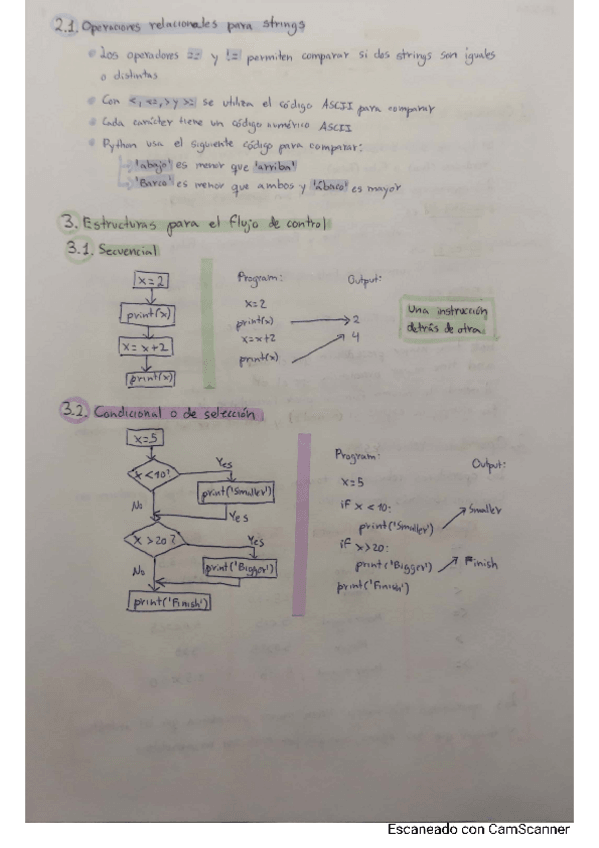 2.1. Operaciones relacionales para strings
Los operadores == y != permiten comparar si dos strings son iguales
o distintas
Con <, <=, > y >= se utiliza el código ASCII para comparar
Cada carácter tiene un código numérico ASCII
Python usa el siguiente código para comparar:
'abajo' es menor que 'arriba'
'Barco' es menor que ambos y 'ábaco' es mayor
3. Estructuras para el flujo de control
3.1. Secuencial
x=2
print(x)
x=x+2
print(x)
Program:
x=2
print(x)
x=x+2
print(x)
Output:
2
4
Una instrucción
detrás de otra.
3.2. Condicional o de selección
x=5
x<10?
Yes
print('Smaller')
No
Yes
x>20?
Yes
print('Bigger')
No
print('Finish')
Program:
x=5
if x < 10:
print('Smaller')
if x>20:
print('Bigger')
print('Finish')
Output:
Smaller
Finish
Escaneado con CamScanner